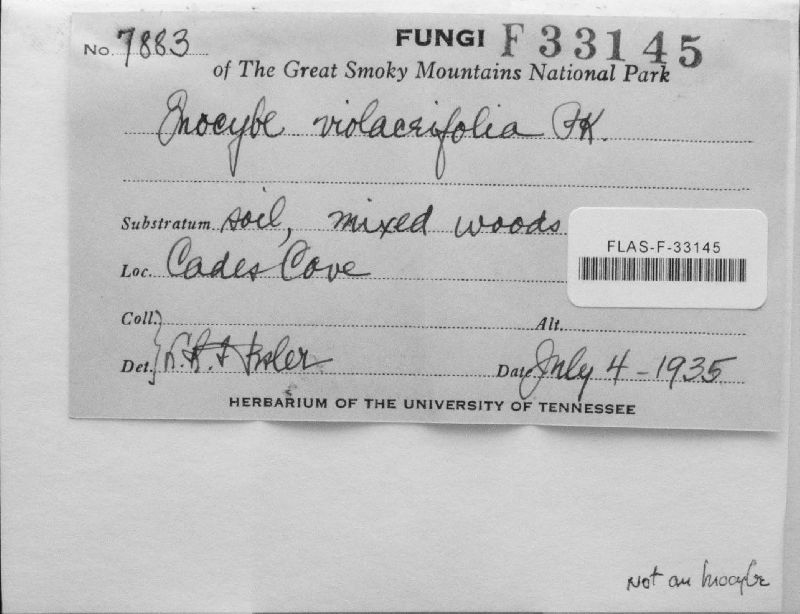 No. 7883 FUNGI F 33145
of The Great Smoky Mountains National Park
Inocybe violaceifolia Pk.
Substratum soil, mixed woods
FLAS-F-33145
Loc. Cades Cove
Coll. Alt.
Det. Date July 4 - 1935
HERBARIUM OF THE UNIVERSITY OF TENNESSEE
Not an Inocybe